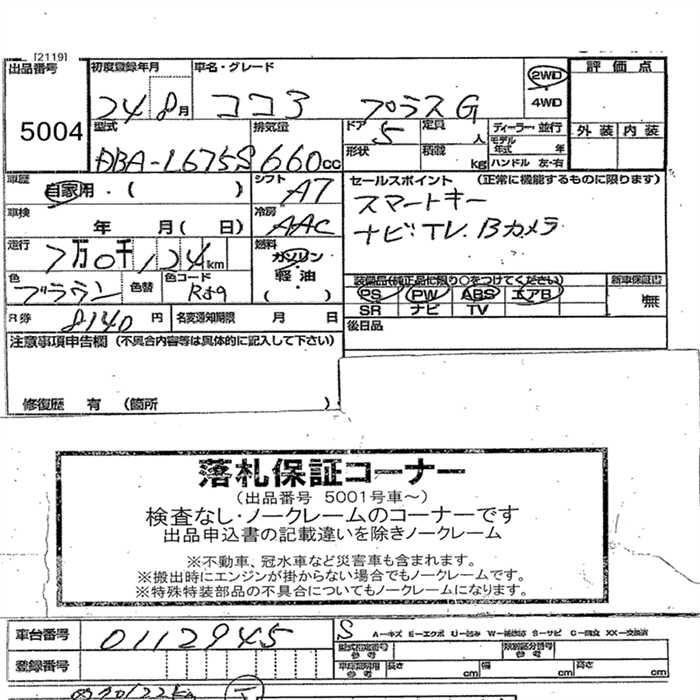 [2119]
出品番号 初度登録年月 車名・グレード 2WD 評価点
5004 24 8月 ココア プラスG 4WD
型式 排気量 ドア 5 定員 人 ディーラー・並行 外装 内装
DBA-L675S 660cc 形状 積載 kg モデル年式 年
ハンドル 左・右
車歴 自家用・( ) シフト AT セールスポイント (正常に機能するものに限ります)
車検 年 月( 日) 冷房 AAC スマートキー
走行 7万0千124km 燃料 ガソリン ナビ.TV.Bカメラ
色 ブラウン 色替 色コード R59 軽油 ( ) 装備品(純正品に限り○をつけてください) 新車保証書
PS PW ABS エアB 無
R券 8140円 名変通知期限 月 日 SR ナビ TV
注意事項申告欄(不具合内容等は具体的に記入して下さい) 後日品
修復歴 有 (箇所 )
落札保証コーナー
(出品番号 5001号車～)
検査なし・ノークレームのコーナーです
出品申込書の記載違いを除きノークレーム
※不動車、冠水車など災害車も含まれます。
※搬出時にエンジンが掛からない場合でもノークレームです。
※特殊特装部品の不具合についてもノークレームになります。
車台番号 0112945 S A-キズ E-エクボ U-凹み W-補修跡 S-サビ C-腐食 XX-交換済
型式指定番号 参考 類別区分番号 参考
登録番号 車庫証明用 参考 長さ cm 幅 cm 高さ cm